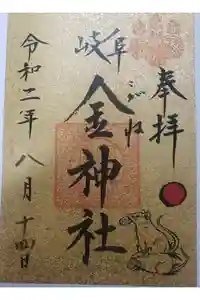 奉拝
岐阜
こがね
金神社
令和二年八月十四日